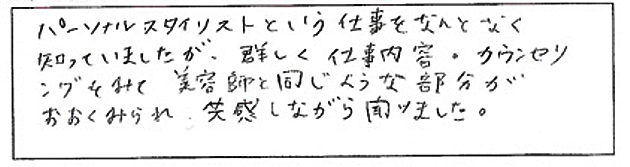 パーソナルスタイリストという仕事をなんとなく
知っていましたが、詳しく仕事内容。カウンセリ
ングをみて美容師と同じような部分が
おおくみられ、共感しながら聞けました。